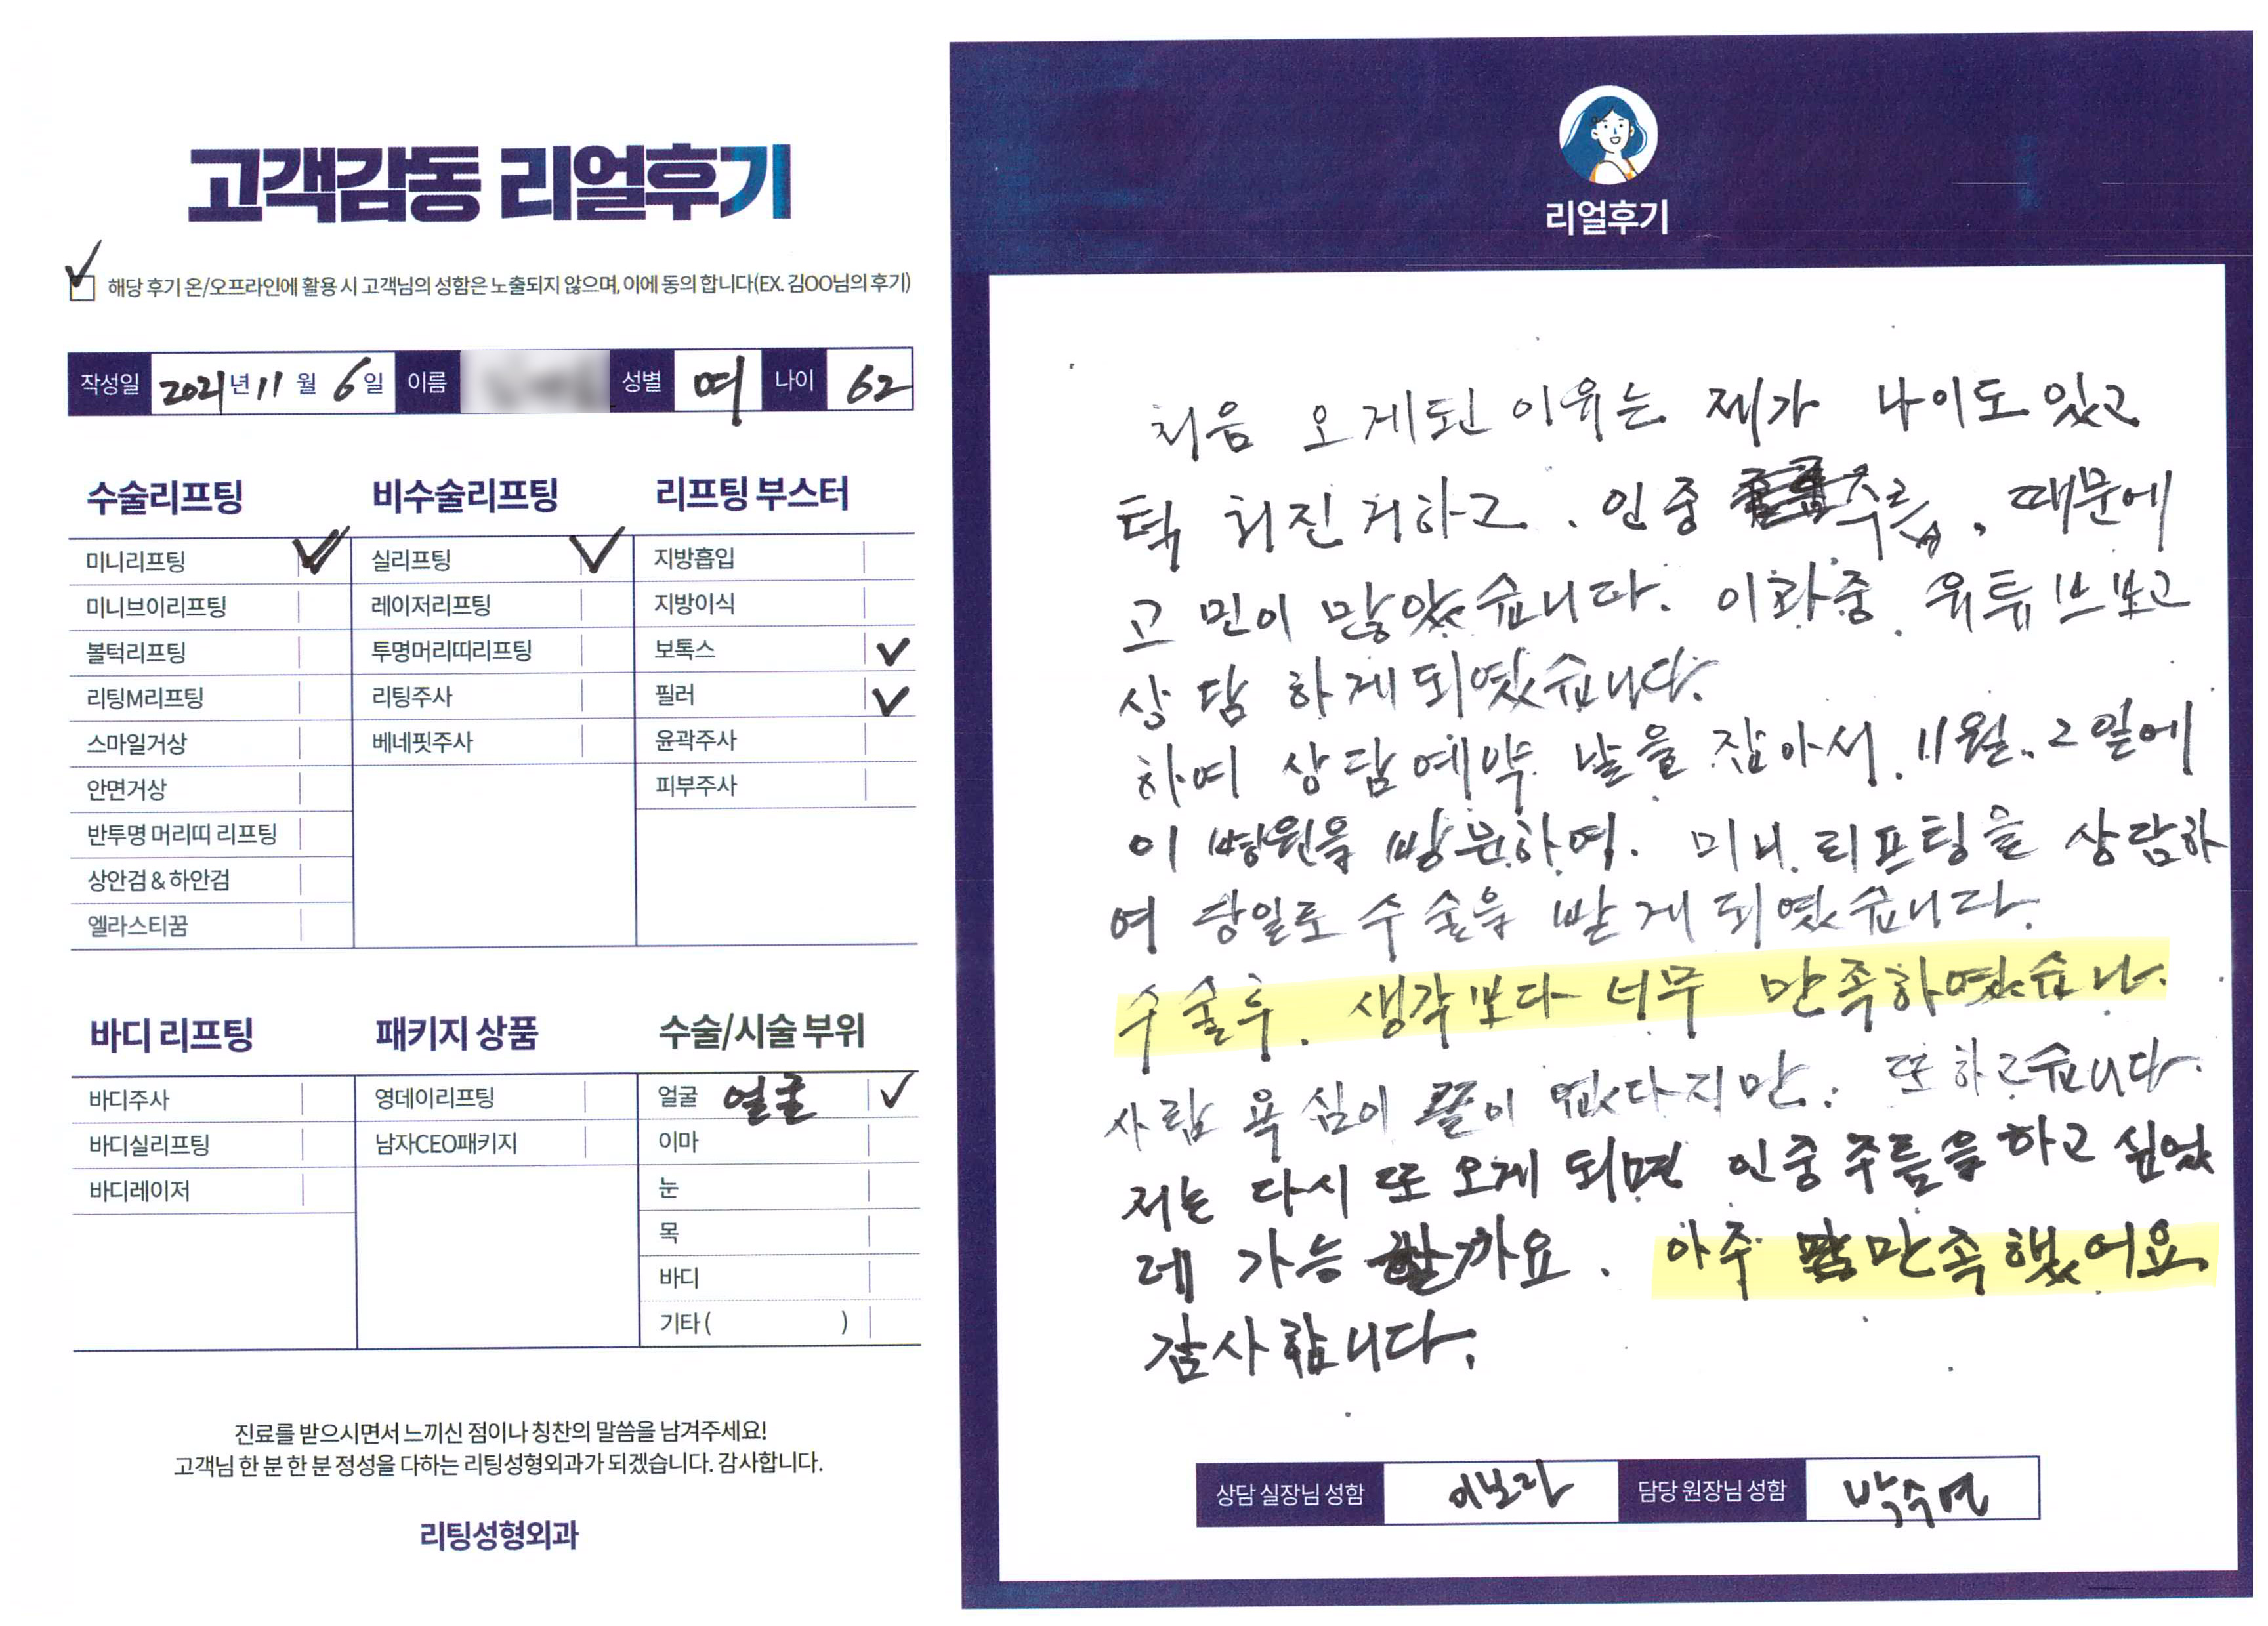 고객감동 리얼후기
해당 후기 온/오프라인에 활용 시 고객님의 성함은 노출되지 않으며, 이에 동의 합니다(EX. 김OO님의 후기)
작성일 2021년 11월 6일 이름 성별 여 나이 62
수술리프팅
미니리프팅
미니브이리프팅
볼턱리프팅
리팅M리프팅
스마일거상
안면거상
반투명 머리띠 리프팅
상안검 & 하안검
엘라스티꿈
비수술리프팅
실리프팅
레이저리프팅
투명머리띠리프팅
리팅주사
베네핏주사
리프팅 부스터
지방흡입
지방이식
보톡스
필러
윤곽주사
피부주사
바디 리프팅
바디주사
바디실리프팅
바디레이저
패키지 상품
영데이리프팅
남자CEO패키지
수술/시술 부위
얼굴 얼굴
이마
눈
목
바디
기타 ( )
진료를 받으시면서 느끼신 점이나 칭찬의 말씀을 남겨주세요!
고객님 한 분 한 분 정성을 다하는 리팅성형외과가 되겠습니다. 감사합니다.
리팅성형외과
리얼후기
처음 오게된 이유는 제가 나이도 있고
턱 처진거하고. 인중 주름, 때문에
고민이 많았습니다. 이와중. 유튜브보고
상담 하게 되였습니다.
하여 상담예약 날을 잡아서. 11월. 2일에
이 병원을 방문하여. 미니 리프팅을 상담하
여 당일로 수술을 받게 되였습니다.
수술후. 생각보다 너무 만족하였습니다.
사람 욕심이 끝이 없다지만. 또 하고습니다.
저는 다시 또 오게 되면 인중 주름을 하고 싶었
데 가능 할까요. 아주 만족했어요
감사합니다.
상담 실장님 성함 이보라 담당 원장님 성함 박수연